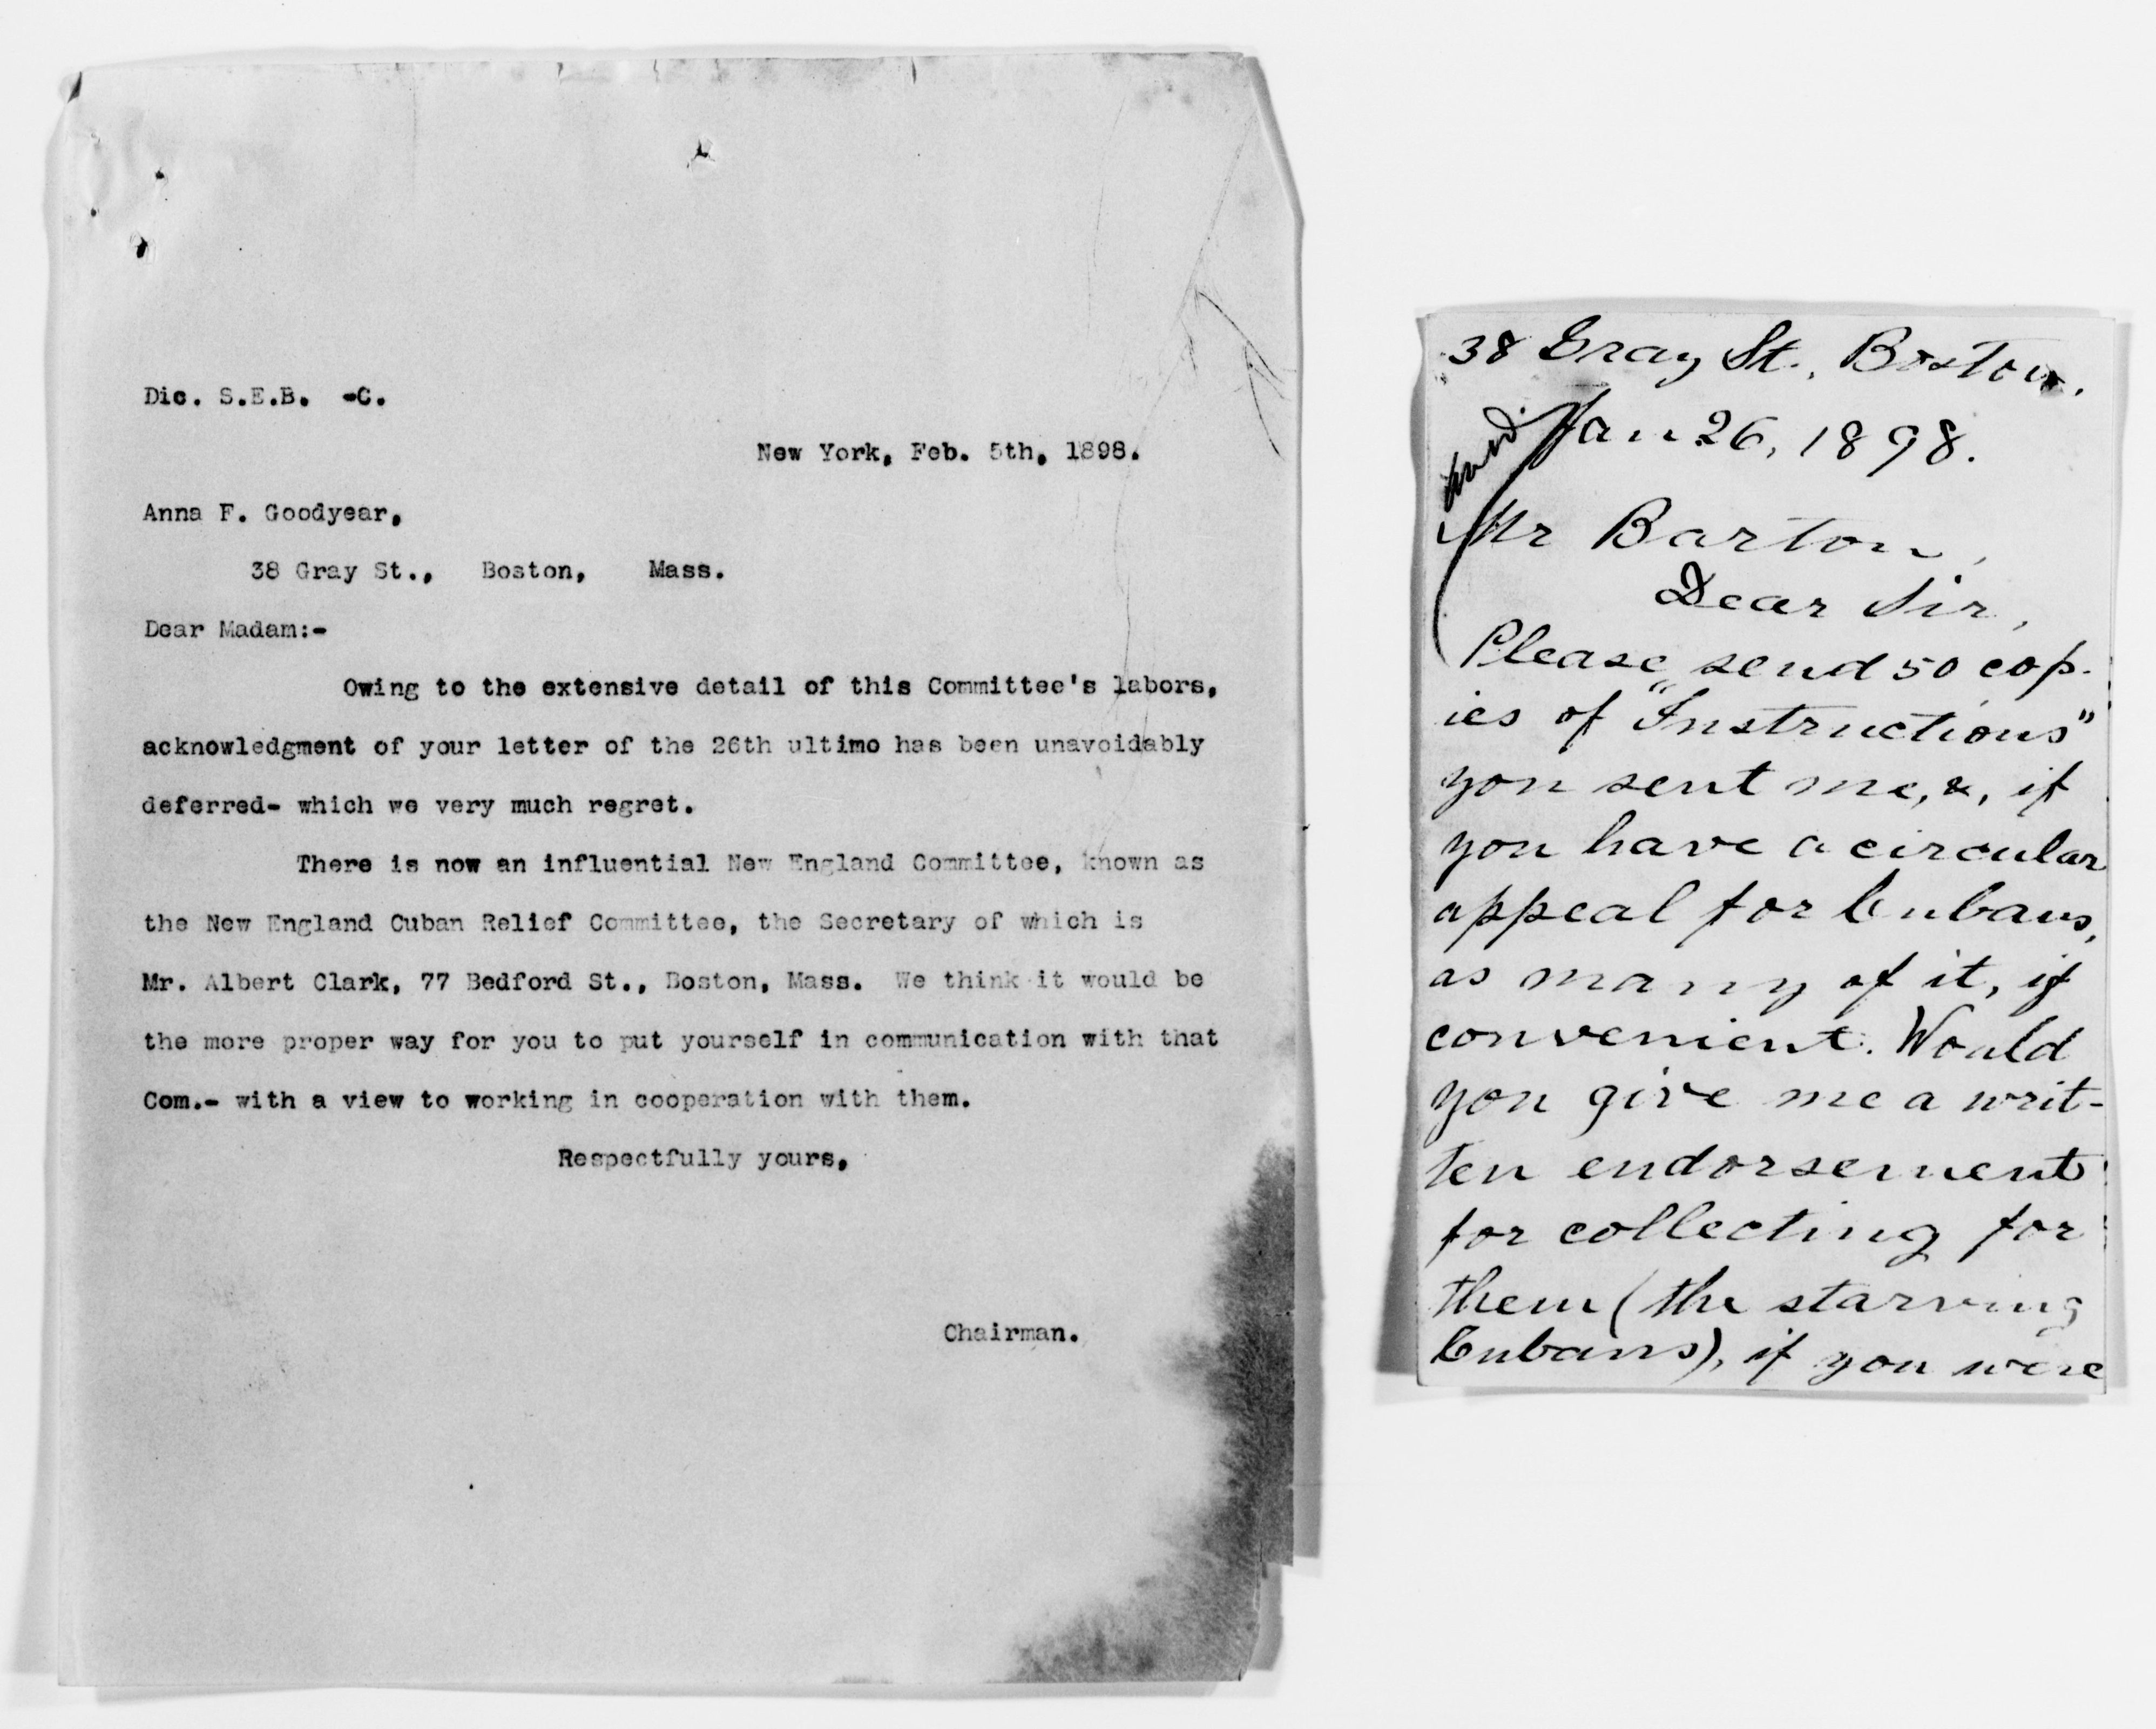 Dic. S.E.B. -C.
New York, Feb. 5th, 1898.
Anna F. Goodyear,
38 Gray St., Boston, Mass.
Dear Madam:-
Owing to the extensive detail of this Committee's labors,
acknowledgment of your letter of the 26th ultimo has been unavoidably
deferred- which we very much regret.
There is now an influential New England Committee, known as
the New England Cuban Relief Committee, the Secretary of which is
Mr. Albert Clark, 77 Bedford St., Boston, Mass. We think it would be
the more proper way for you to put yourself in communication with that
Com.- with a view to working in cooperation with them.
Respectfully yours,
Chairman.
38 Gray St., Boston,
Jan 26, 1898.
Mr Barton,
Dear Sir,
Please send 50 cop-
ies of "Instructions"
you sent me, &, if
you have a circular
appeal for Cubans,
as many of it, if
convenient. Would
you give me a writ-
ten endorsement
for collecting for
them (the starving
Cubans), if you were